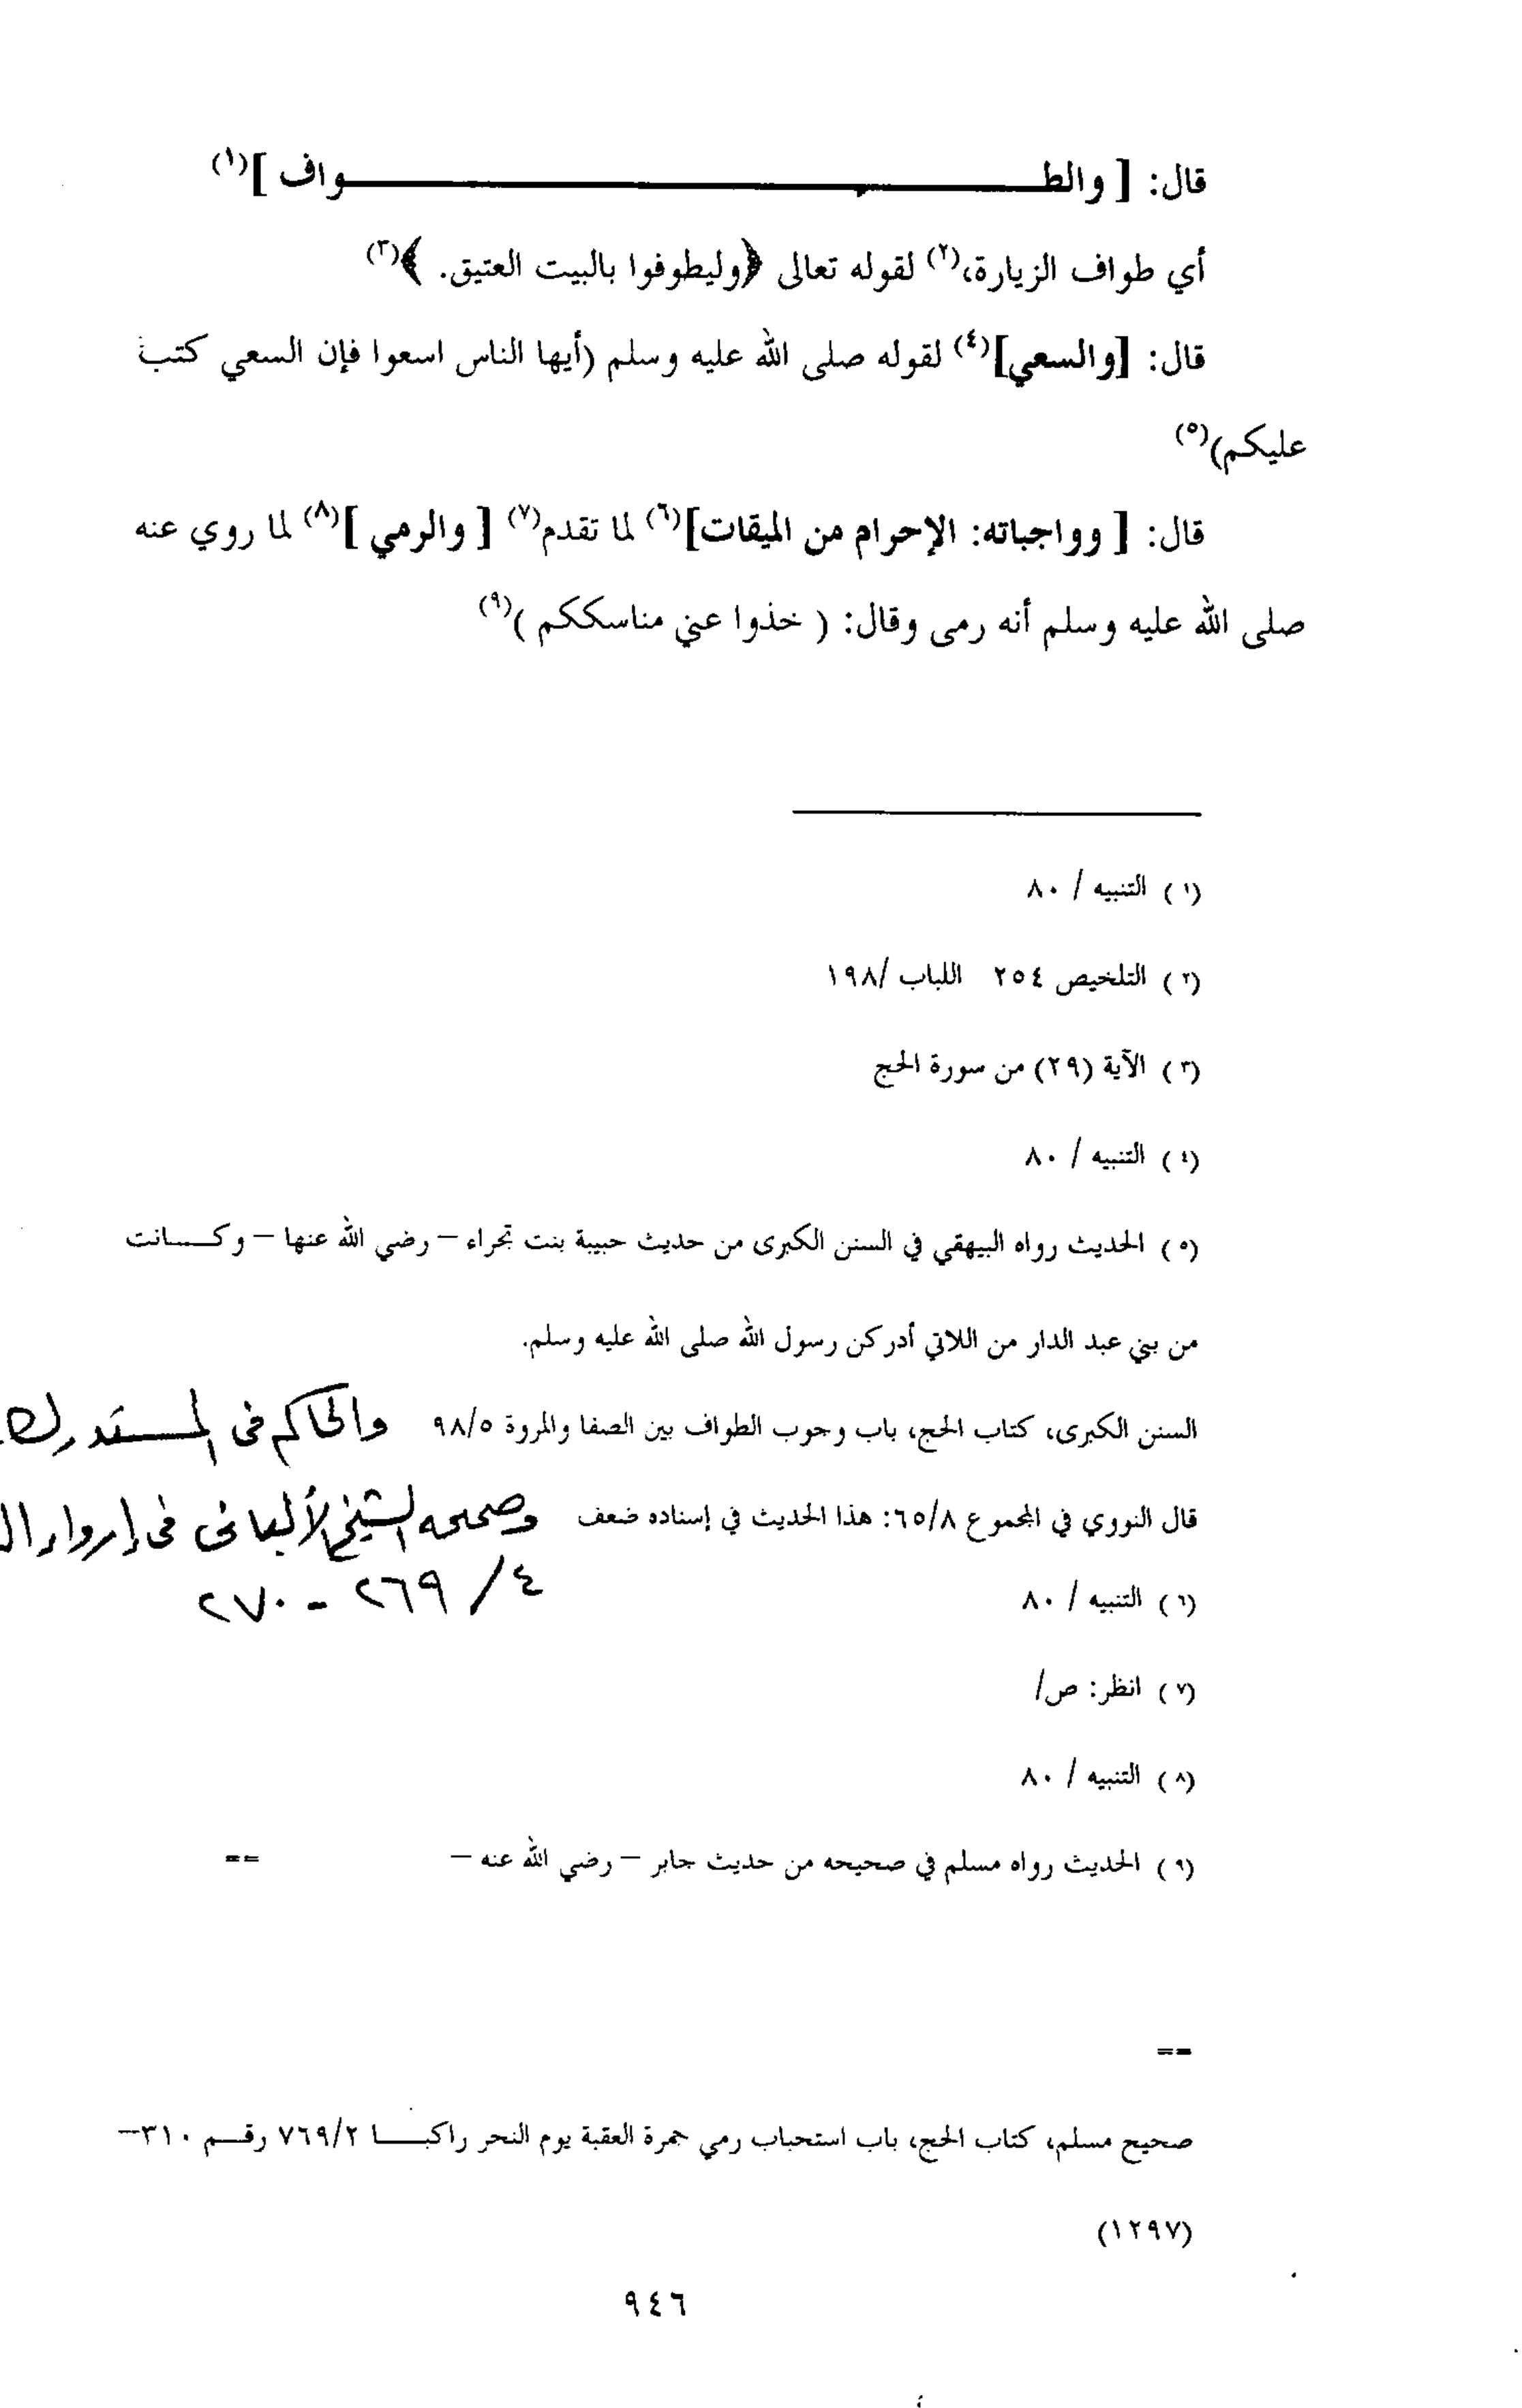 قال: [ والطـــــــــــــــــــــــــــواف ](١)
أي طواف الزيارة،(٢) لقوله تعالى ﴿وليطوفوا بالبيت العتيق. ﴾(٣)
قال: [والسعي](٤) لقوله صلى الله عليه وسلم (أيها الناس اسعوا فإن السعي كتب
عليكم)(٥)
قال: [ وواجباته: الإحرام من الميقات](٦) لما تقدم(٧) [ والرمي ](٨) لما روي عنه
صلى الله عليه وسلم أنه رمى وقال: ( خذوا عني مناسككم )(٩)
(١) التنبيه / ٨٠
(٢) التلخيص ٢٥٤ اللباب /١٩٨
(٣) الآية (٢٩) من سورة الحج
(٤) التنبيه / ٨٠
(٥) الحديث رواه البيهقي في السنن الكبرى من حديث حبيبة بنت تجراء – رضي الله عنها – وكـــانت
من بني عبد الدار من اللاتي أدركن رسول الله صلى الله عليه وسلم.
السنن الكبرى، كتاب الحج، باب وجوب الطواف بين الصفا والمروة ٩٨/٥ والحاكم في المستدرك
قال النووي في المجموع ٦٥/٨: هذا الحديث في إسناده ضعف وصححه الشيخ الألباني في إرواء ال
٤/ ٢٦٩ - ٢٧٠
(٦) التنبيه / ٨٠
(٧) انظر: ص/
(٨) التنبيه / ٨٠
(٩) الحديث رواه مسلم في صحيحه من حديث جابر – رضي الله عنه – ==
==
صحيح مسلم، كتاب الحج، باب استحباب رمي جمرة العقبة يوم النحر راكبــا ٧٦٩/٢ رقــم ٣١٠–
(١٢٩٧)
٩٤٦